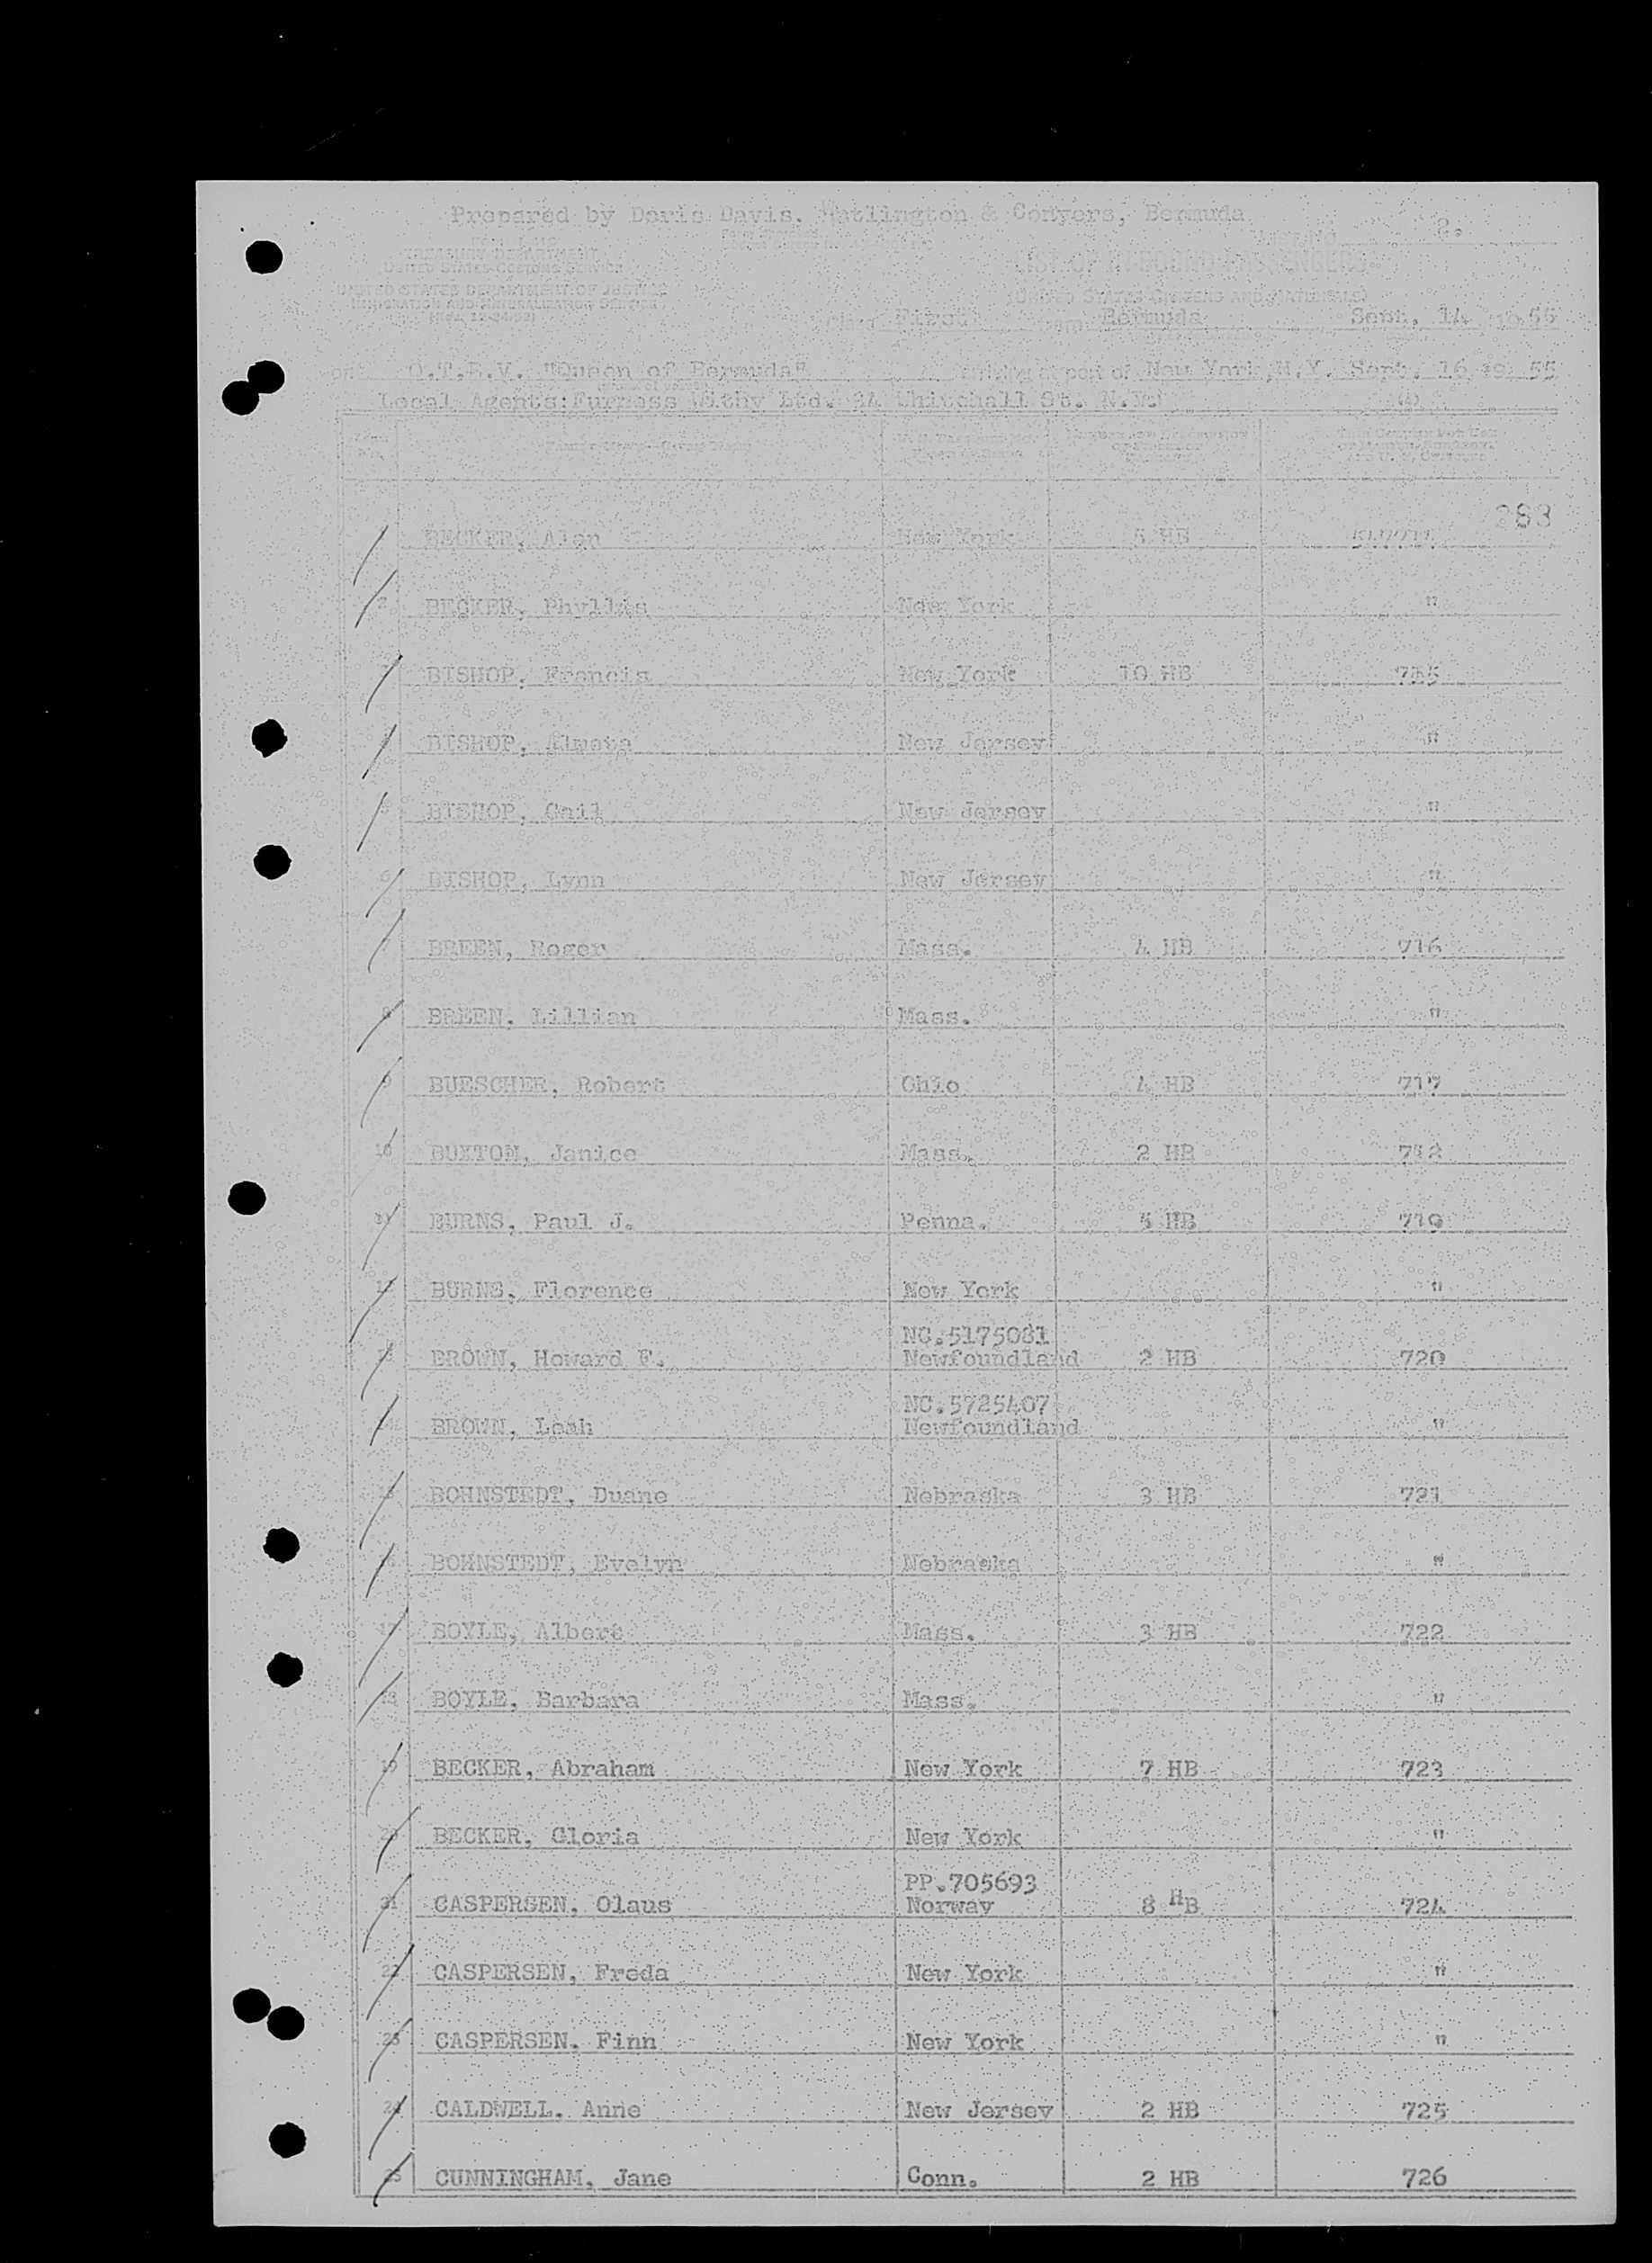 Prepared by Doris Davis. Watlington & Conyers, Bermuda
2.
TREASURY DEPARTMENT
UNITED STATES CUSTOMS SERVICE
LIST OF IN-BOUND PASSENGERS
UNITED STATES DEPARTMENT OF JUSTICE
IMMIGRATION AND NATURALIZATION SERVICE
(UNITED STATES CITIZENS AND NATIONALS)
First from Bermuda Sept. 14, 1955
on Q.T.E.V. "Queen of Bermuda" arriving at port of New York, N.Y. Sept. 16 19 55
Local Agents: Furness Withy Ltd. 34 Whitehall St. N.Y.
(4)
283
BECKER, Alan New York 5 HB
2 BECKER, Phyllis New York "
BISHOP, Francis New York 10 HB 715
4 BISHOP, Almeta New Jersey "
5 BISHOP, Gail New Jersey "
6 BISHOP, Lynn New Jersey "
7 BREEN, Roger Mass. 4 HB 716
8 BREEN, Lillian Mass. "
9 BUESCHER, Robert Ohio 4 HB 717
10 BUXTON, Janice Mass. 2 HB 718
11 BURNS, Paul J. Penna. 5 HB 719
12 BURNS, Florence New York "
NC.5175081
13 BROWN, Howard F. Newfoundland 2 HB 720
NC.5725407
14 BROWN, Leah Newfoundland "
15 BOHNSTEDT, Duane Nebraska 3 HB 721
16 BOHNSTEDT, Evelyn Nebraska "
17 BOYLE, Albert Mass. 3 HB 722
18 BOYLE, Barbara Mass. "
19 BECKER, Abraham New York 7 HB 723
20 BECKER, Gloria New York "
PP.705693
21 CASPERSEN, Olaus Norway 8 HB 724
22 CASPERSEN, Freda New York "
23 CASPERSEN, Finn New York "
24 CALDWELL, Anne New Jersey 2 HB 725
25 CUNNINGHAM, Jane Conn. 2 HB 726